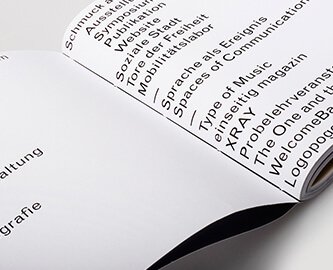 altung
grafie
Schmuck a
Ausstell
Symposiu
Publikation
Website
Soziale Stadt
Tore der Freiheit
Mobilitätslabor
— Sprache als Ereignis
Spaces of Communication
— Type of Music
einseitig magazin
XRAY
Probelehrveranst
The One and th
WelcomeBa
Logopog